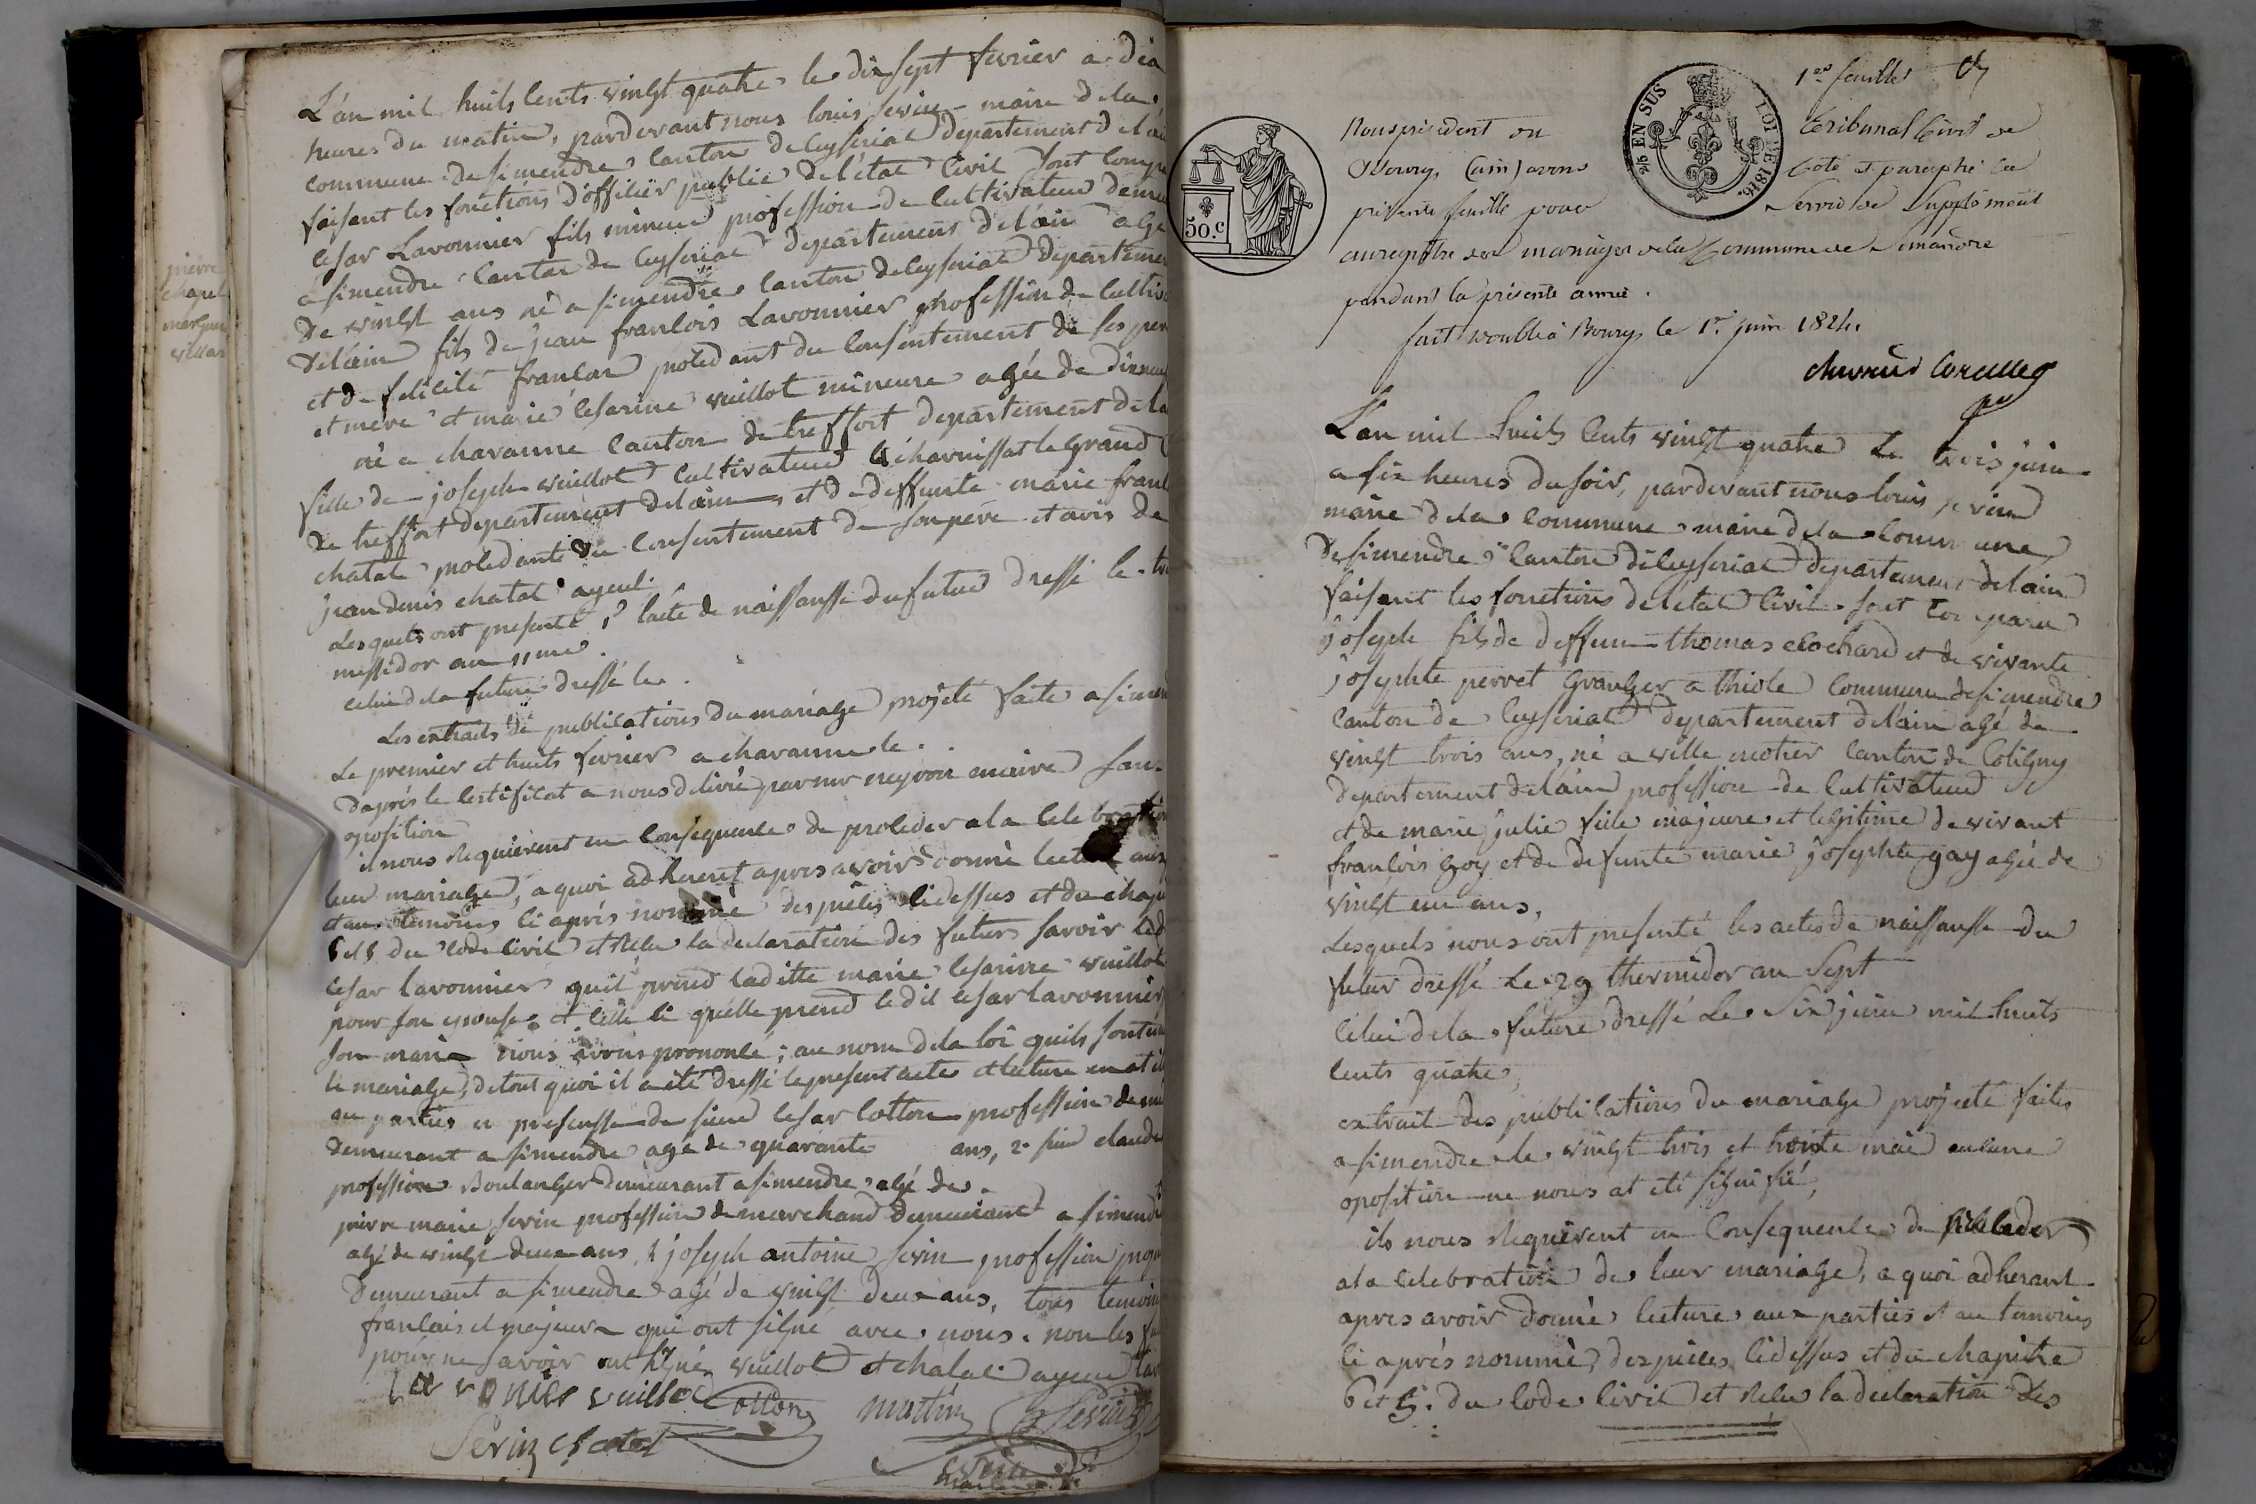 L'an mil huits cents vingt quatre le dix sept fevrier a dix
heures du matin, pardevant nous louis sevin maire de la
commune de simendre canton de ceyseriat departement de l'ain
faisant les fonctions d'officier public de l'état civil sont compa
cesar Lavonnier fils mineur profession de cultivateur demeu
a simendre canton de ceyseriat departement de l'ain agé
de vingt ans né a simendre canton de ceyseriat departemen
de l'ain fils de jean francois Lavonnier profession de cultiv
et de felicité procedant du consentement de ses per
et mere et marie cesarine vuillot mineure agée de dixneuf
né a chavanne canton de treffort departement de la
fille de joseph vuillot cultivateur a le grand
de treffort departement de lain et de deffunte marie
chatal procedante du consentement de son pere et avis de
jean denis chatal ayeul.
Lesquels ont presenté, l'acte de naissansse du futur dressé le
messidor an 11me.
celui de la future dressé le .
Les extraits de publications du mariage projeté faite a simen
Le premier et huits fevrier a chavanne le .
daprés le certificat a nous delivré par mr neyron maire san
oposition
il nous requierent en consequence de proceder a la celebration
leur mariage, a quoi adherent apres avoir donné lecture aux
et aux temoins ci aprés nommé des piéces cidessus et du chapi
6 et 5 du code civil et relu la declaration des futurs savoir led
cesar lavonnier quil prend laditte marie cesarine vuillot
pour son epouse et celle ci quelle prend ledit cesar lavonnier
son marie nous avons prononcé; au nom de la loi quils sont uni
le mariage, de tout quoi il a été dressé le present acte et lecture en at été
au parties en presensse de sieur cesar cotton profession de
demeurant a simendre agé de quarante ans, 2. sieur claude
profession Boulanger demeurant a simendre agé de .
pierre marie sevin profession de marchand demeurant a simendre
agé de vingt deux ans, & joseph antoine sevin profession
demeurant a simendre agé de vingt deux ans, tous temoins
francais et majeurs qui ont signé avec nous. non les
pour ne savoir ont signé vuillot et chatal ayeul
La vonier vuillot Cotton martin Sevin
Sevin chatal
Sevin
maire
pierre
chapel
vilar
50.c
2/5 EN SUS LOI DE 1816.
1ere feuille
Nous president du Tribunal Civil de
Bourg, (ain) avons Coté et paraphé la
présente feuille pour Servir de Supplément
au registre des mariages de la Commune de Simandre
pendant la présente année.
fait double à Bourg le 1er juin 1824.
L'an mil huits cents vingt quatre Le trois juin
a six heures du soir, pardevant nous louis sevin
maire de la commune maire de la commune
de simendre canton de ceyseriat departement de lain
faisant les fonctions de letat civil. sont comparu
joseph fils de deffun thomas clochard et de vivante
josephte perret Granger a thiole commune de simendre
canton de ceyseriat departement de lain agé de
vingt trois ans, né a ville motier canton de Coligny
departement de lain profession de cultivateur
et de marie julie fille majeure et legitime de vivant
francois goy et de defunte marie josephte gay agée de
vingt un ans,
Lesquels nous ont presenté les actes de naissansse du
futur dressé Le 29 thermidor an Sept
celui de la future dressé Le Six juin mil huits
cents quatre,
extrait des publications du mariage projeté faites
a simendre le vingt trois et trente mai aucune
oposition ne nous at été signifié,
ils nous requierent en consequence de proceder
a la celebration de leur mariage, a quoi adherant
apres avoir donné lecture aux parties et au temoins
ci aprés nommé, des piéces cidessus et du chapitre
6 et 5. du code civil et relu la declaration des